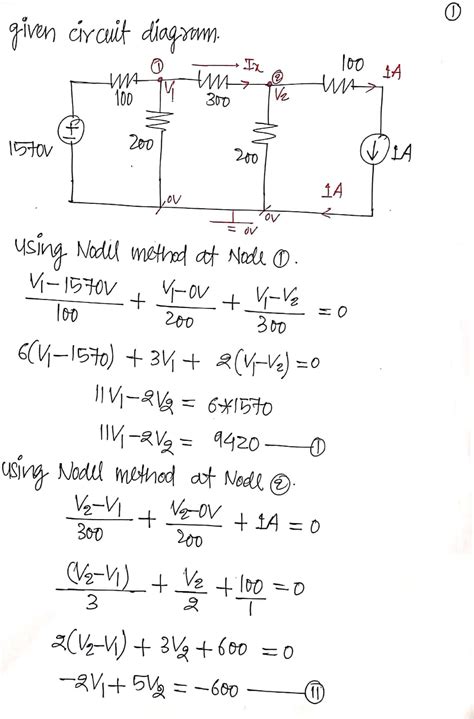 ①
given circuit diagram.
① Ix ② 100 1A
100 V1 300 V2
1570V 200 200 1A
1A
0V 0V
0V
using Nodel method at Node ①.
V1-1570V/100 + V1-0V/200 + V1-V2/300 = 0
6(V1-1570) + 3V1 + 2(V1-V2) = 0
11V1-2V2 = 6*1570
11V1-2V2 = 9420 — Ⓘ
using Nodel method at Node ②.
V2-V1/300 + V2-0V/200 + 1A = 0
(V2-V1)/3 + V2/2 + 100/1 = 0
2(V2-V1) + 3V2 + 600 = 0
-2V1 + 5V2 = -600 — ⓘⓘ